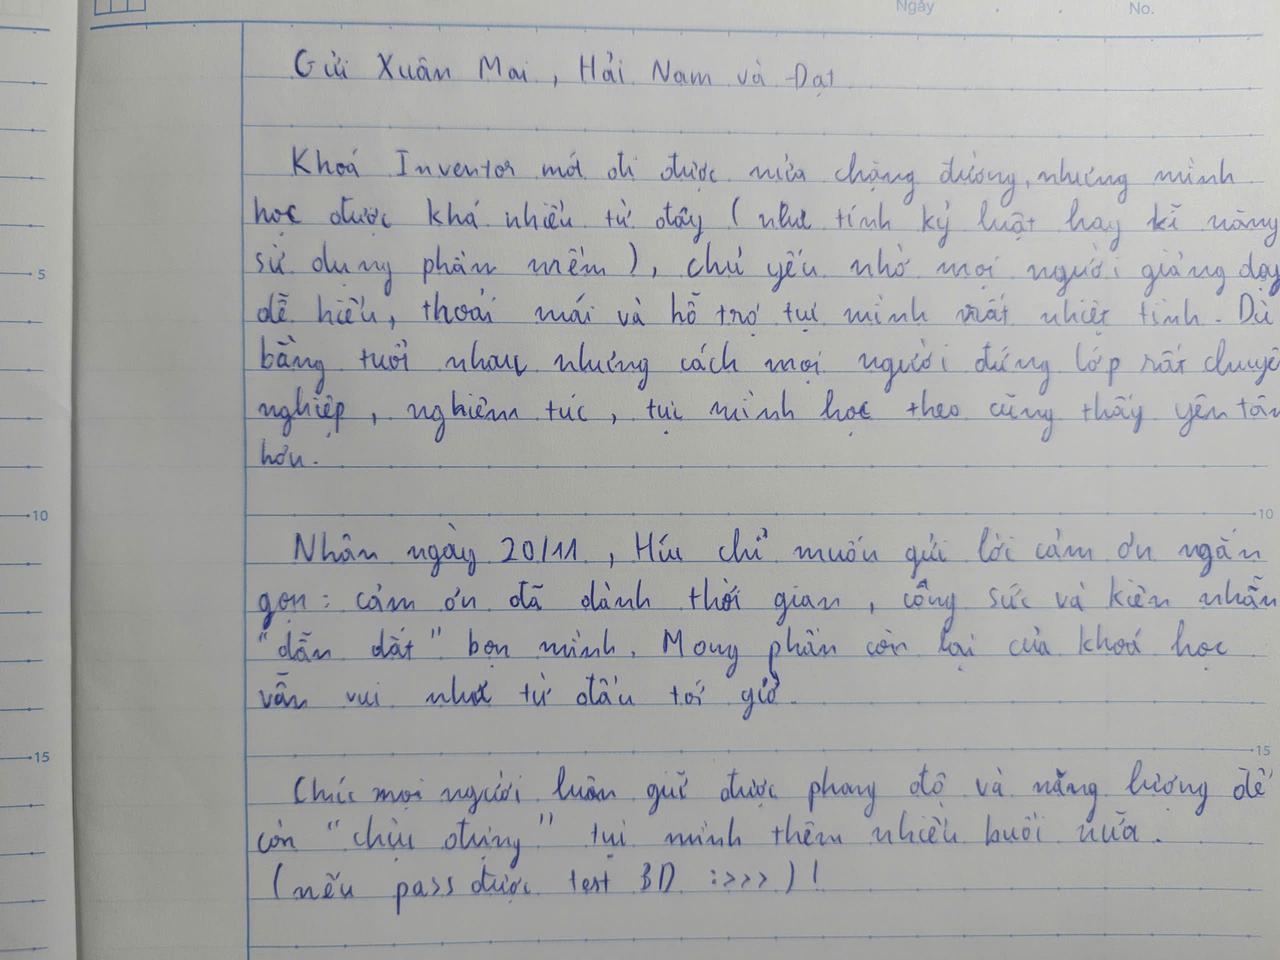 Ngày
No.
Gửi Xuân Mai, Hải Nam và Đạt
Khoá Inventor mới đi được nửa chặng đường, nhưng mình
học được khá nhiều từ đây (như tính kỷ luật hay kĩ năng
5
sử dụng phần mềm), chủ yếu nhờ mọi người giảng dạy
dễ hiểu, thoải mái và hỗ trợ tụi mình rất nhiệt tình. Dù
bằng tuổi nhau nhưng cách mọi người đứng lớp rất chuyê
nghiệp, nghiêm túc, tụi mình học theo cũng thấy yên tâm
hơn.
10
10
Nhân ngày 20/11, Híu chỉ muốn gửi lời cảm ơn ngắn
gọn: cảm ơn đã dành thời gian, công sức và kiên nhẫn
"dẫn dắt" bọn mình. Mong phần còn lại của khoá học
vẫn vui như từ đầu tới giờ.
15
15
Chúc mọi người luôn giữ được phong độ và năng lượng để
còn "chịu đựng" tụi mình thêm nhiều buổi nữa.
(nếu pass được test 3D :>>>)!